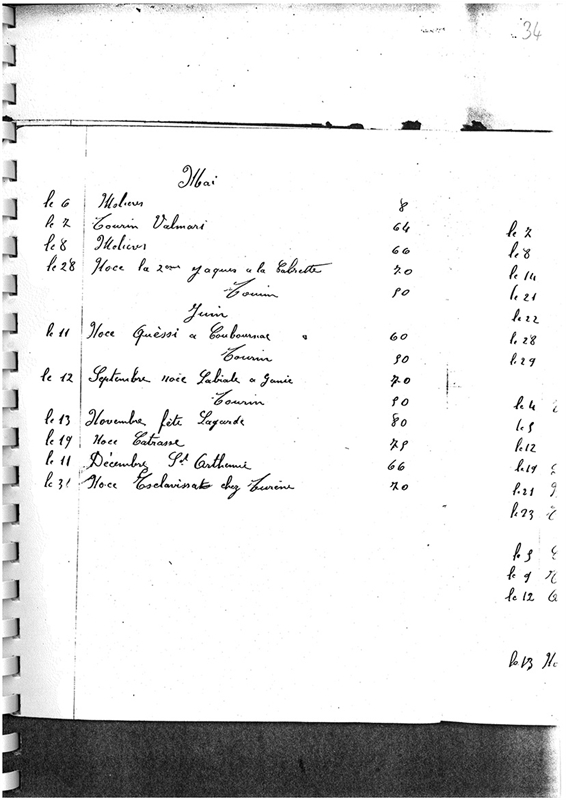 34
Mai
le 6 Molieres 8
le 7 Tourin Valmari 64
le 8 Molieres 66
le 28 Noce la 2eme Jaques a la Calsette 70
Tourin 90
Juin
le 11 Noce Quèssi a Coubournac 60
Tourin 90
le 12 Septembre noce Labiale a Janie 70
Tourin 90
le 13 Novembre fête Lagarde 80
le 19 noce Catrasse 75
le 11 Décembre St Arthemie 66
le 31 Noce Esclavissat chez Turene 70
le 7
le 8
le 14
le 21
le 22
le 28
le 29
le 4
le 5
le 12
le 19
le 21
le 23
le 5
le 9
le 12
le 13